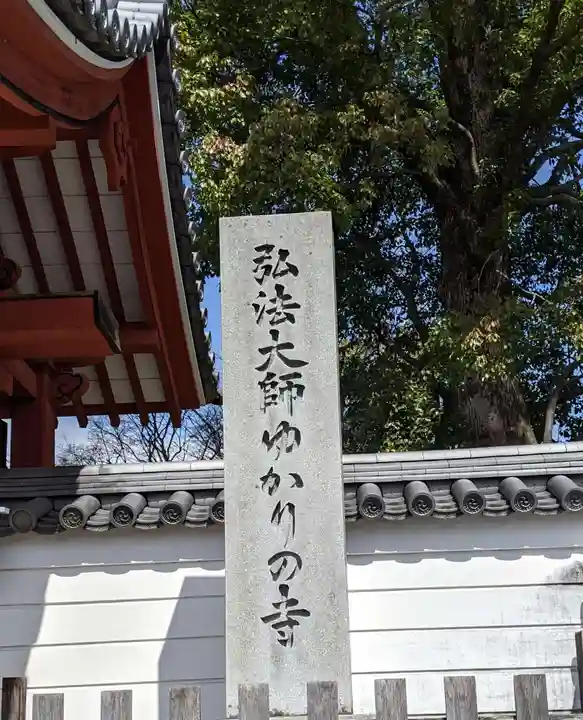 弘法大師ゆかりの寺